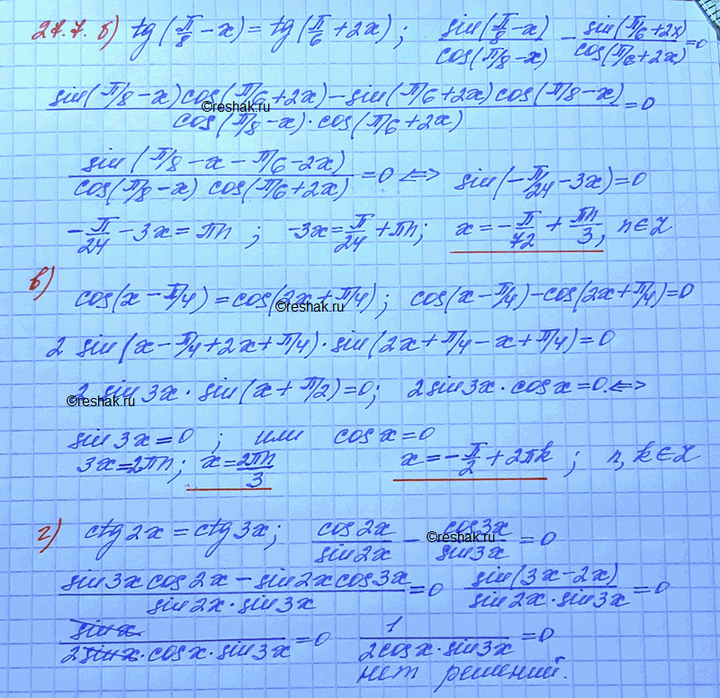 27.7. б) tg(π/8 - x) = tg(π/6 + 2x); sin(π/8 - x)/cos(π/8 - x) - sin(π/6 + 2x)/cos(π/6 + 2x) = 0
sin(π/8 - x)cos(π/6 + 2x) - sin(π/6 + 2x)cos(π/8 - x)/cos(π/8 - x)·cos(π/6 + 2x) = 0
©reshak.ru
sin(π/8 - x - π/6 - 2x)/cos(π/8 - x) cos(π/6 + 2x) = 0 <=> sin(-π/24 - 3x) = 0
-π/24 - 3x = πn; -3x = π/24 + πn; x = -π/72 + πn/3, n∈Z
в)
cos(x - π/4) = cos(2x + π/4); cos(x - π/4) - cos(2x + π/4) = 0
©reshak.ru
2 sin(x - π/4 + 2x + π/4)·sin(2x + π/4 - x + π/4) = 0
2 sin 3x · sin(x + π/2) = 0; 2 sin 3x · cos x = 0. <=>
©reshak.ru
sin 3x = 0; или cos x = 0
3x = 2πn; x = 2πn/3 x = -π/2 + 2πk; n, k∈Z
г) ctg 2x = ctg 3x; cos 2x/sin 2x - cos 3x/sin 3x = 0
©reshak.ru
sin 3x cos 2x - sin 2x cos 3x/sin 2x · sin 3x = 0 sin(3x - 2x)/sin 2x · sin 3x = 0
sin x/2 sin x · cos x · sin 3x = 0 1/2 cos x · sin 3x = 0
нет решений.